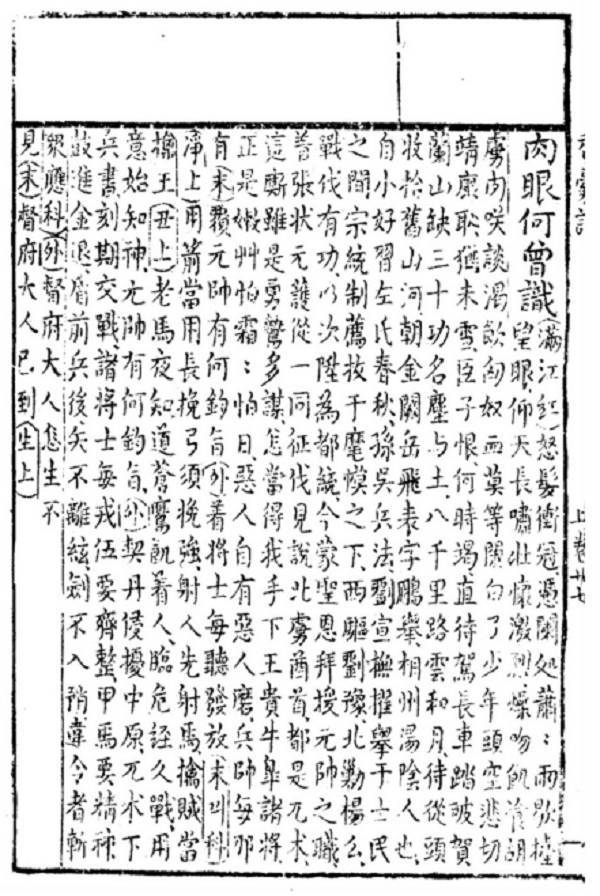 上卷 廿七
肉眼何曾識(滿江紅)怒髮衝冠憑闌処蕭〻雨歇擡
望眼仰天長嘯壯懷激烈燥吻飢飡胡
虜肉咲談渴飲匈奴血莫等閑白了少年頭空悲切
靖康恥猶未雪臣子恨何時竭直待駕長車踏破賀
蘭山缺三十功名塵与土八千里路雲和月待從頭
收拾舊山河朝金闕岳飛表字鵬舉相州湯陰人也
自小好習左氏春秋孫吳兵法劉宣撫擢舉于士民
之間宗統制薦拔于麾幙之下西驅劉豫北勦楊么
戰伐有功以次陞為都統今蒙聖恩拜授元帥之職
着張狀元護從一同征伐見說北虜酋首都是兀朮
這厮雖是勇鷙多謀怎當得我手下王貴牛皐諸將
正是嫩艸怕霜〻怕日惡人自有惡人磨兵帥每那
有(末)覆元帥有何鈞旨(外)着將士每聽發放(末叫科)
(淨上)用箭當用長挽弓須挽強射人先射馬擒賊當
擒王(丑上)老馬夜知道蒼鷹飢着人臨危経久戰用
意始知神元帥有何鈞旨(外)契丹侵擾中原兀朮下
兵書刻期交戰諸將士每戎伍要齊整甲馬要精神
鼓進金退盾前兵後矢不離絃劍不入鞘違令者斬
(眾應科)(外)督府大人怎生不
見(末)督府大人已到(生上)